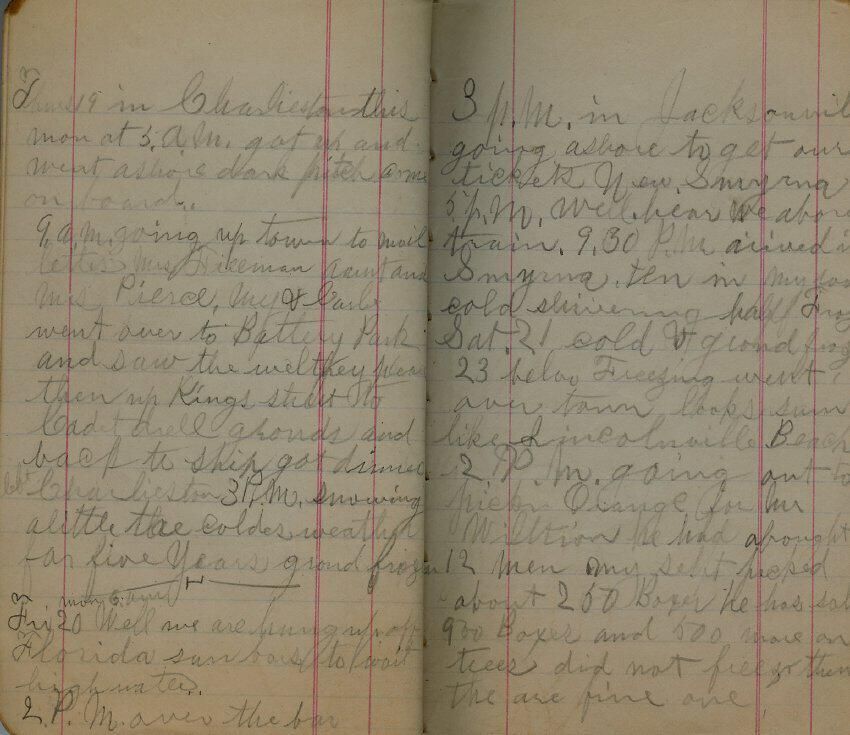 Thurs 19 in Charlieston this
morn at 5, a.m. got up and
went ashore dark pitch come
on board..
9, a,m, going up town to mail
letter Mrs aunt and
Mrs Pierce, My & Carls
went over to Battery Park
and saw the welthey place
then up Kings street to
Cadet drell gronds and
back to ship got dinner
left Charlieston 3 P.M. snowing
alittle the coldes weather
for five Years grond frozen
morn 6. a,m
Fri 20 Well we are hung up off
Florida sun bars to wait
high water..
2, P. M. over the bar
3 p. m. in Jacksonvil
going ashore to get our
tickets New Smyrna
5 p.m. Well, hear we abore
train. 9,30 P.M arived i
Smyrna, ten in my
cold shivering half Froz
Sat. 21 cold & grond froz
23 below Freezing went
over town looks sum
like Lincolnville Beach
2, P. M. going out to
pick Orange for Mr
he had abought
12 men my self picked
about 250 Boxes he has sol
900 Boxes and 500 more on
trees did not freeze them
the are fine one